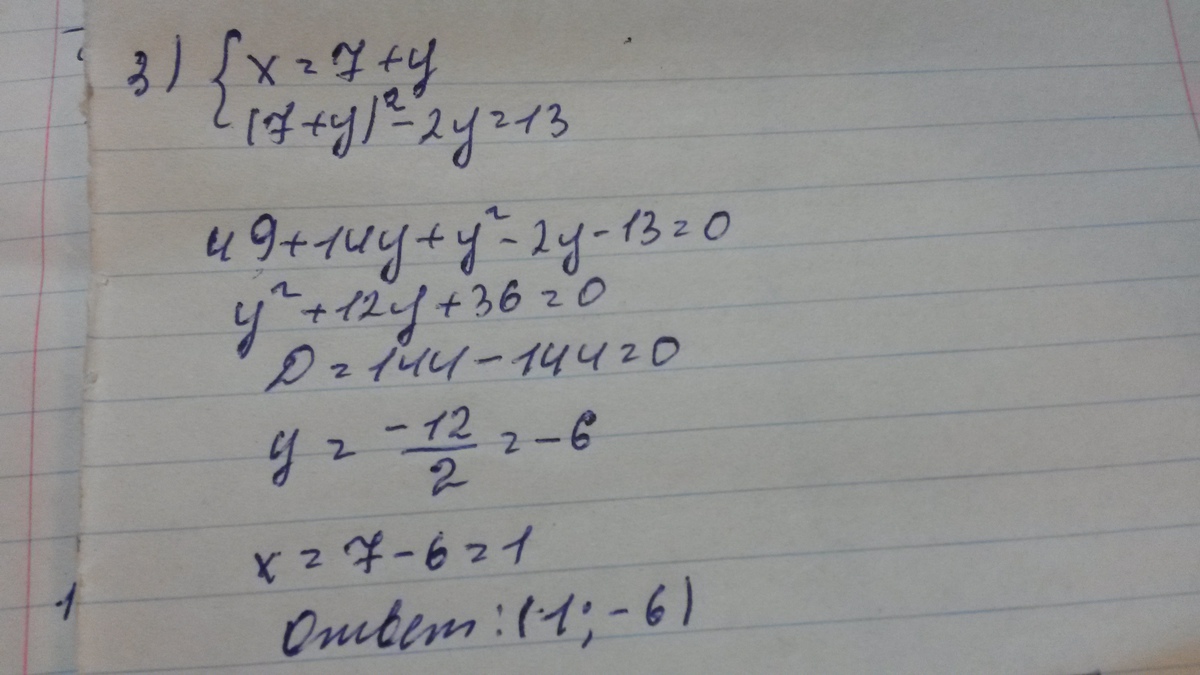 3) { x = 7 + y
(7+y)² - 2y = 13
49 + 14y + y² - 2y - 13 = 0
y² + 12y + 36 = 0
D = 144 - 144 = 0
y = -12/2 = -6
x = 7 - 6 = 1
1
Ответ: (1; -6)